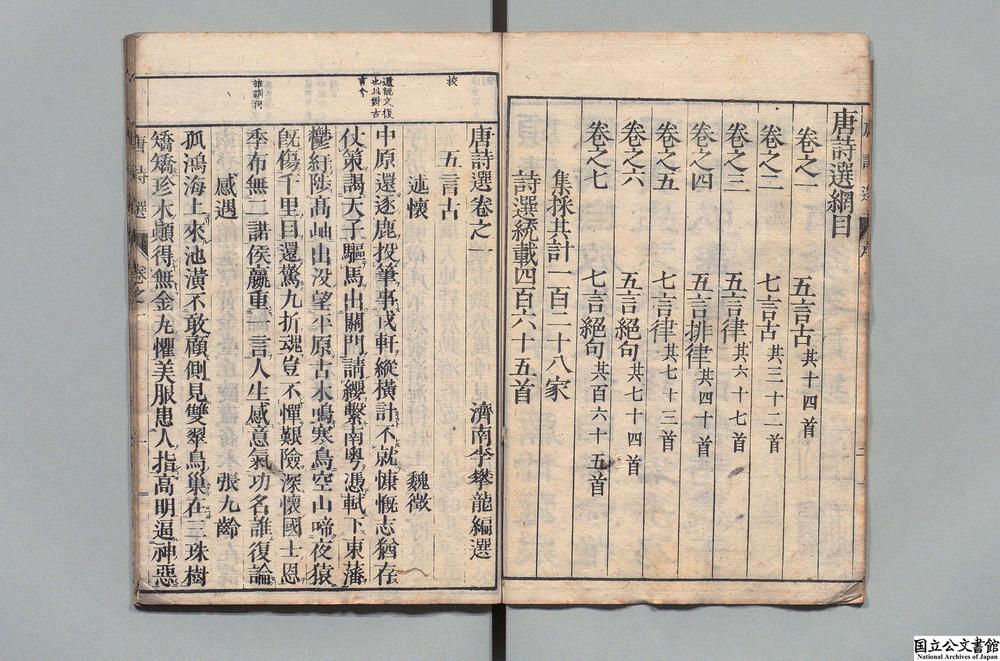 唐詩選綱目
卷之一 五言古 共十四首
卷之二 七言古 共三十二首
卷之三 五言律 共六十七首
卷之四 五言排律 共四十首
卷之五 七言律 共七十三首
卷之六 五言絕句 共七十四首
卷之七 七言絕句 共百六十五首
集採共計一百二十八家
詩選統載四百六十五首
唐詩選卷之一
濟南李攀龍編選
五言古
述懷 魏徵
中原還逐鹿投筆事戎軒縱橫計不就慷慨志猶存
仗策謁天子驅馬出關門請纓繫南粤憑軾下東藩
欝紆陟高岫出没望平原古木鳴寒鳥空山啼夜猿
既傷千里目還驚九折魂豈不憚艱險深懷國士恩
季布無二諾侯嬴重一言人生感意氣功名誰復論
感遇 張九齡
孤鴻海上來池潢不敢顧側見雙翠鳥巢在三珠樹
矯矯珍木顛得無金丸懼美服患人指高明逼神惡
唐詩選 卷之一
國立公文書館
National Archives of Japan